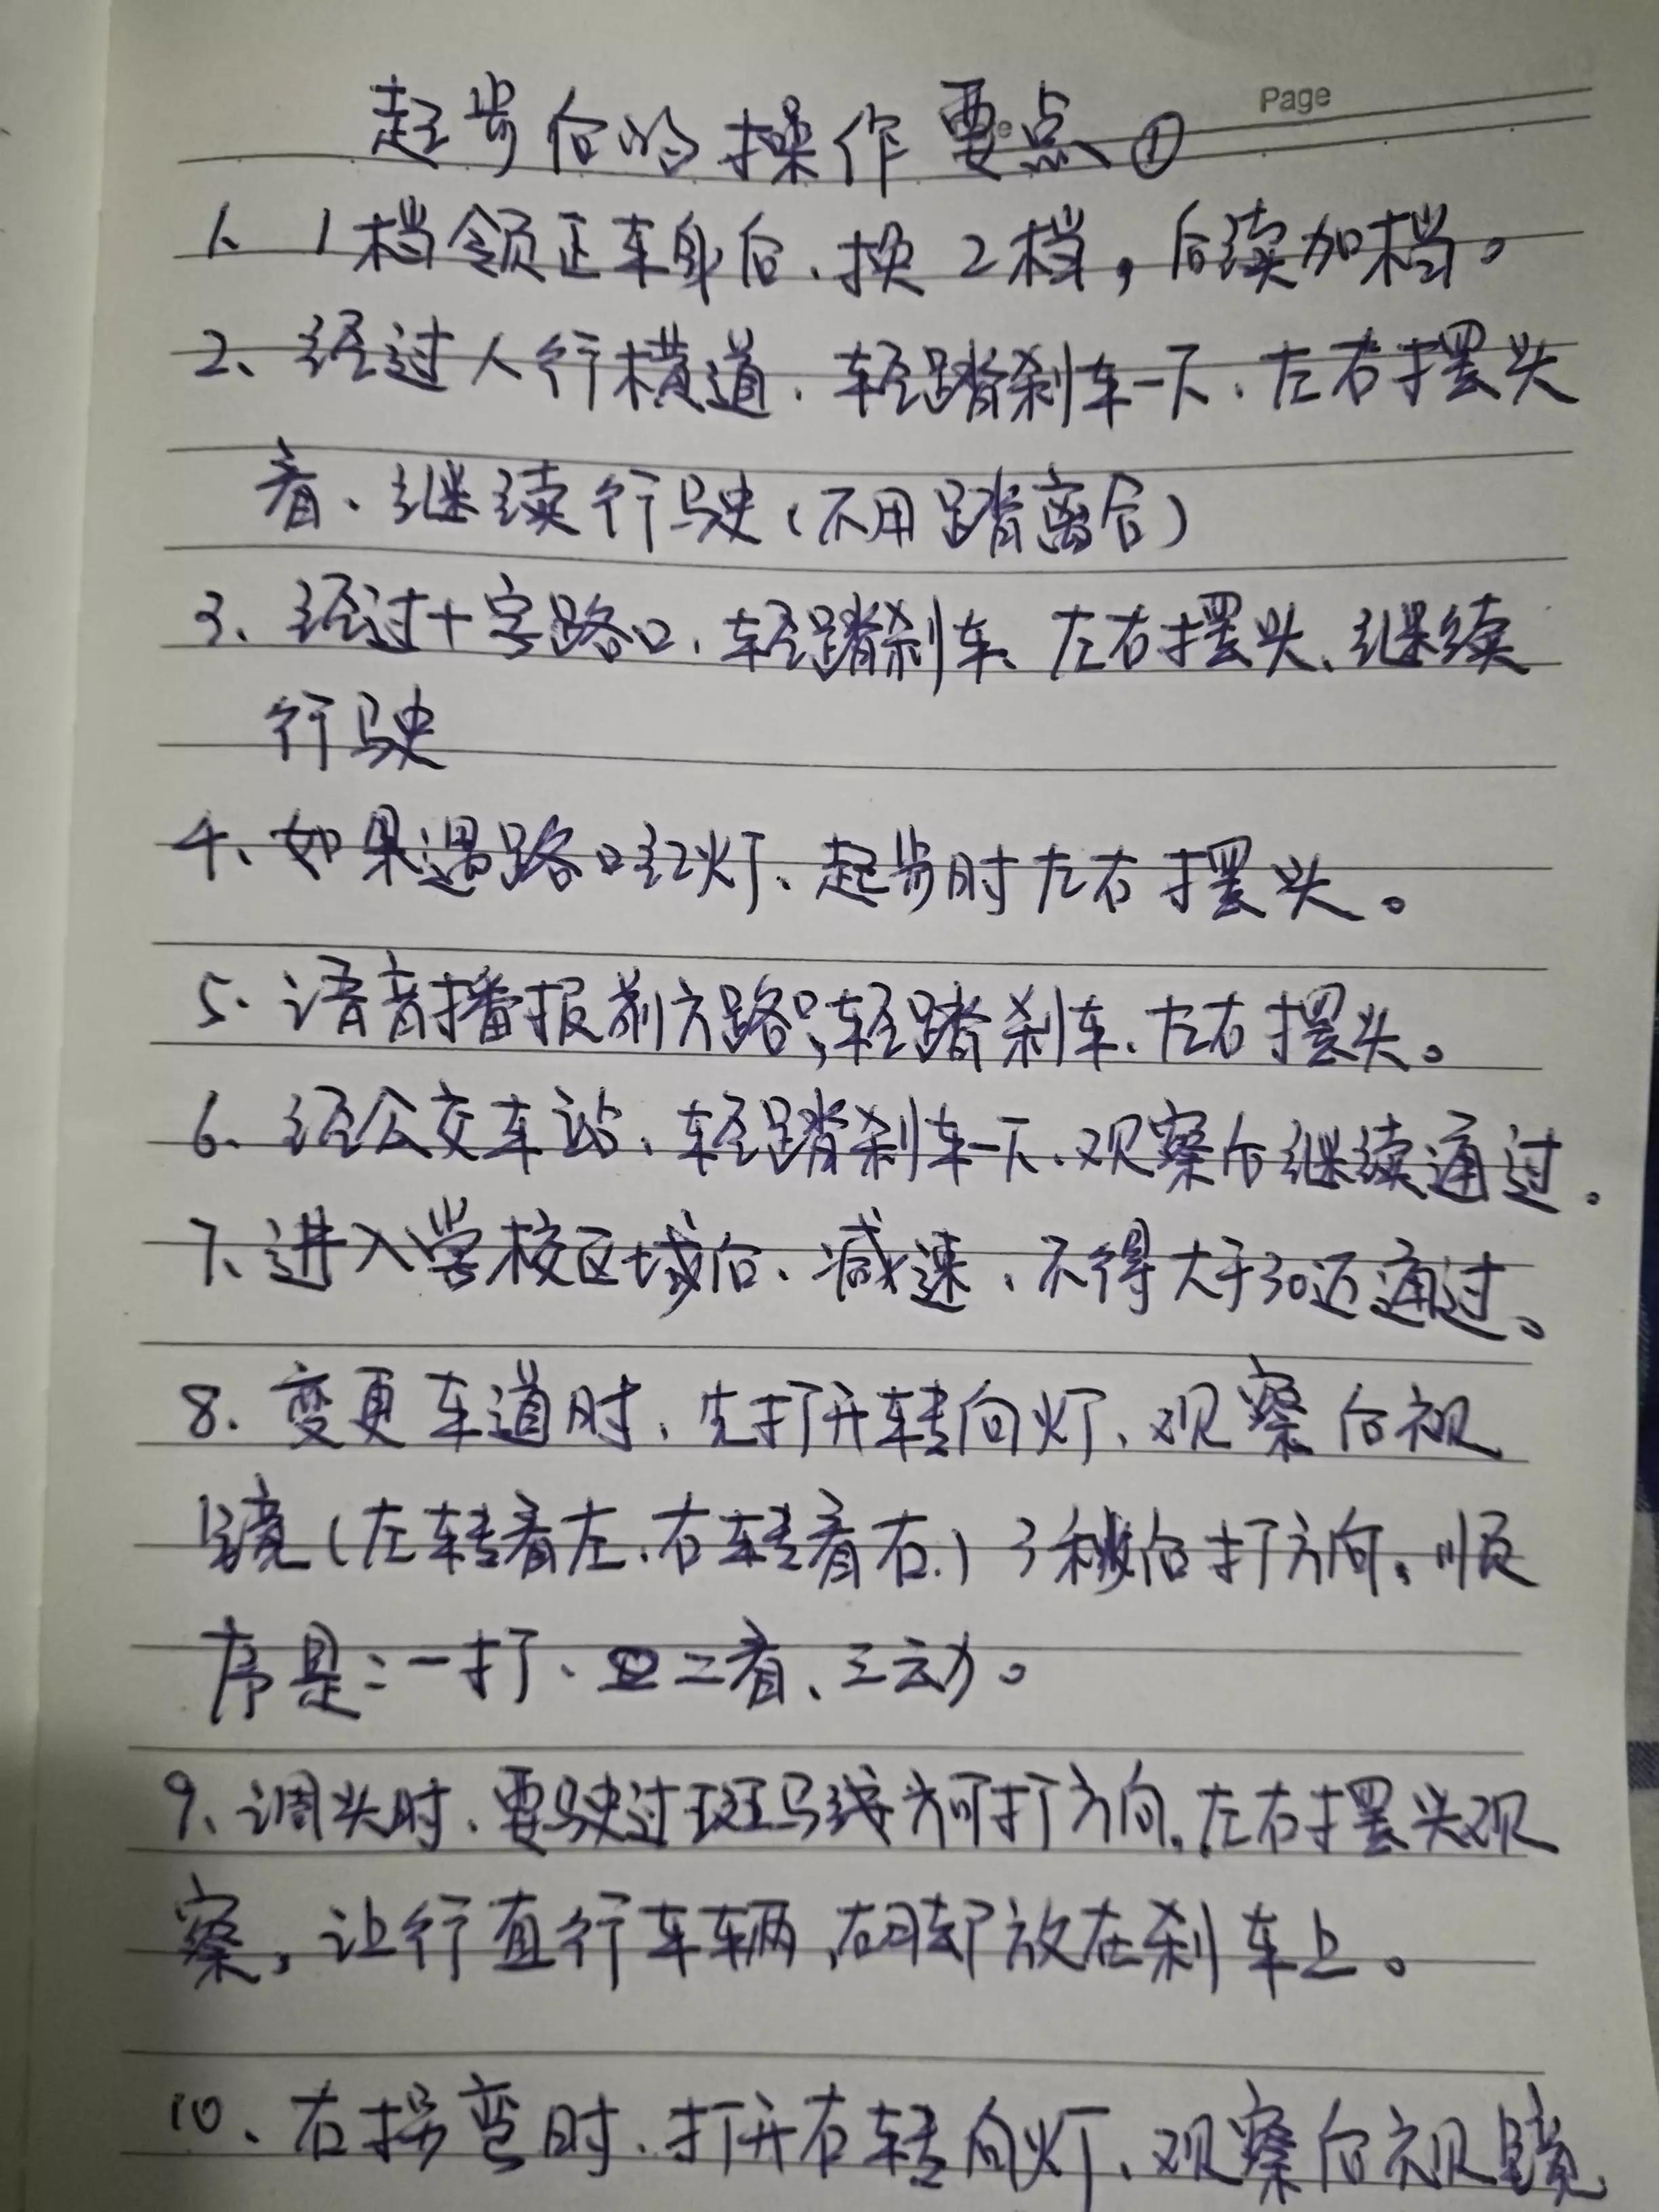 Page
起步后的操作要点①
1、1档领正车身后、换2档，后续加档。
2、经过人行横道、轻踏刹车一下、左右摆头
看、继续行驶（不用踏离合）
3、经过十字路口、轻踏刹车、左右摆头、继续
行驶
4、如果遇路口红灯、起步时左右摆头。
5、语音播报前方路口，轻踏刹车、左右摆头。
6、经公交车站、轻踏刹车一下、观察后继续通过。
7、进入学校区域后、减速、不得大于30迈通过。
8、变更车道时、先打开转向灯、观察后视
镜（左转看左、右转看右、）3秒后打方向。顺
序是：一打、二看、三动。
9、调头时、要驶过斑马线方可打方向。左右摆头观
察。让行直行车辆，右脚放在刹车上。
10、右拐弯时、打开右转向灯、观察后视镜